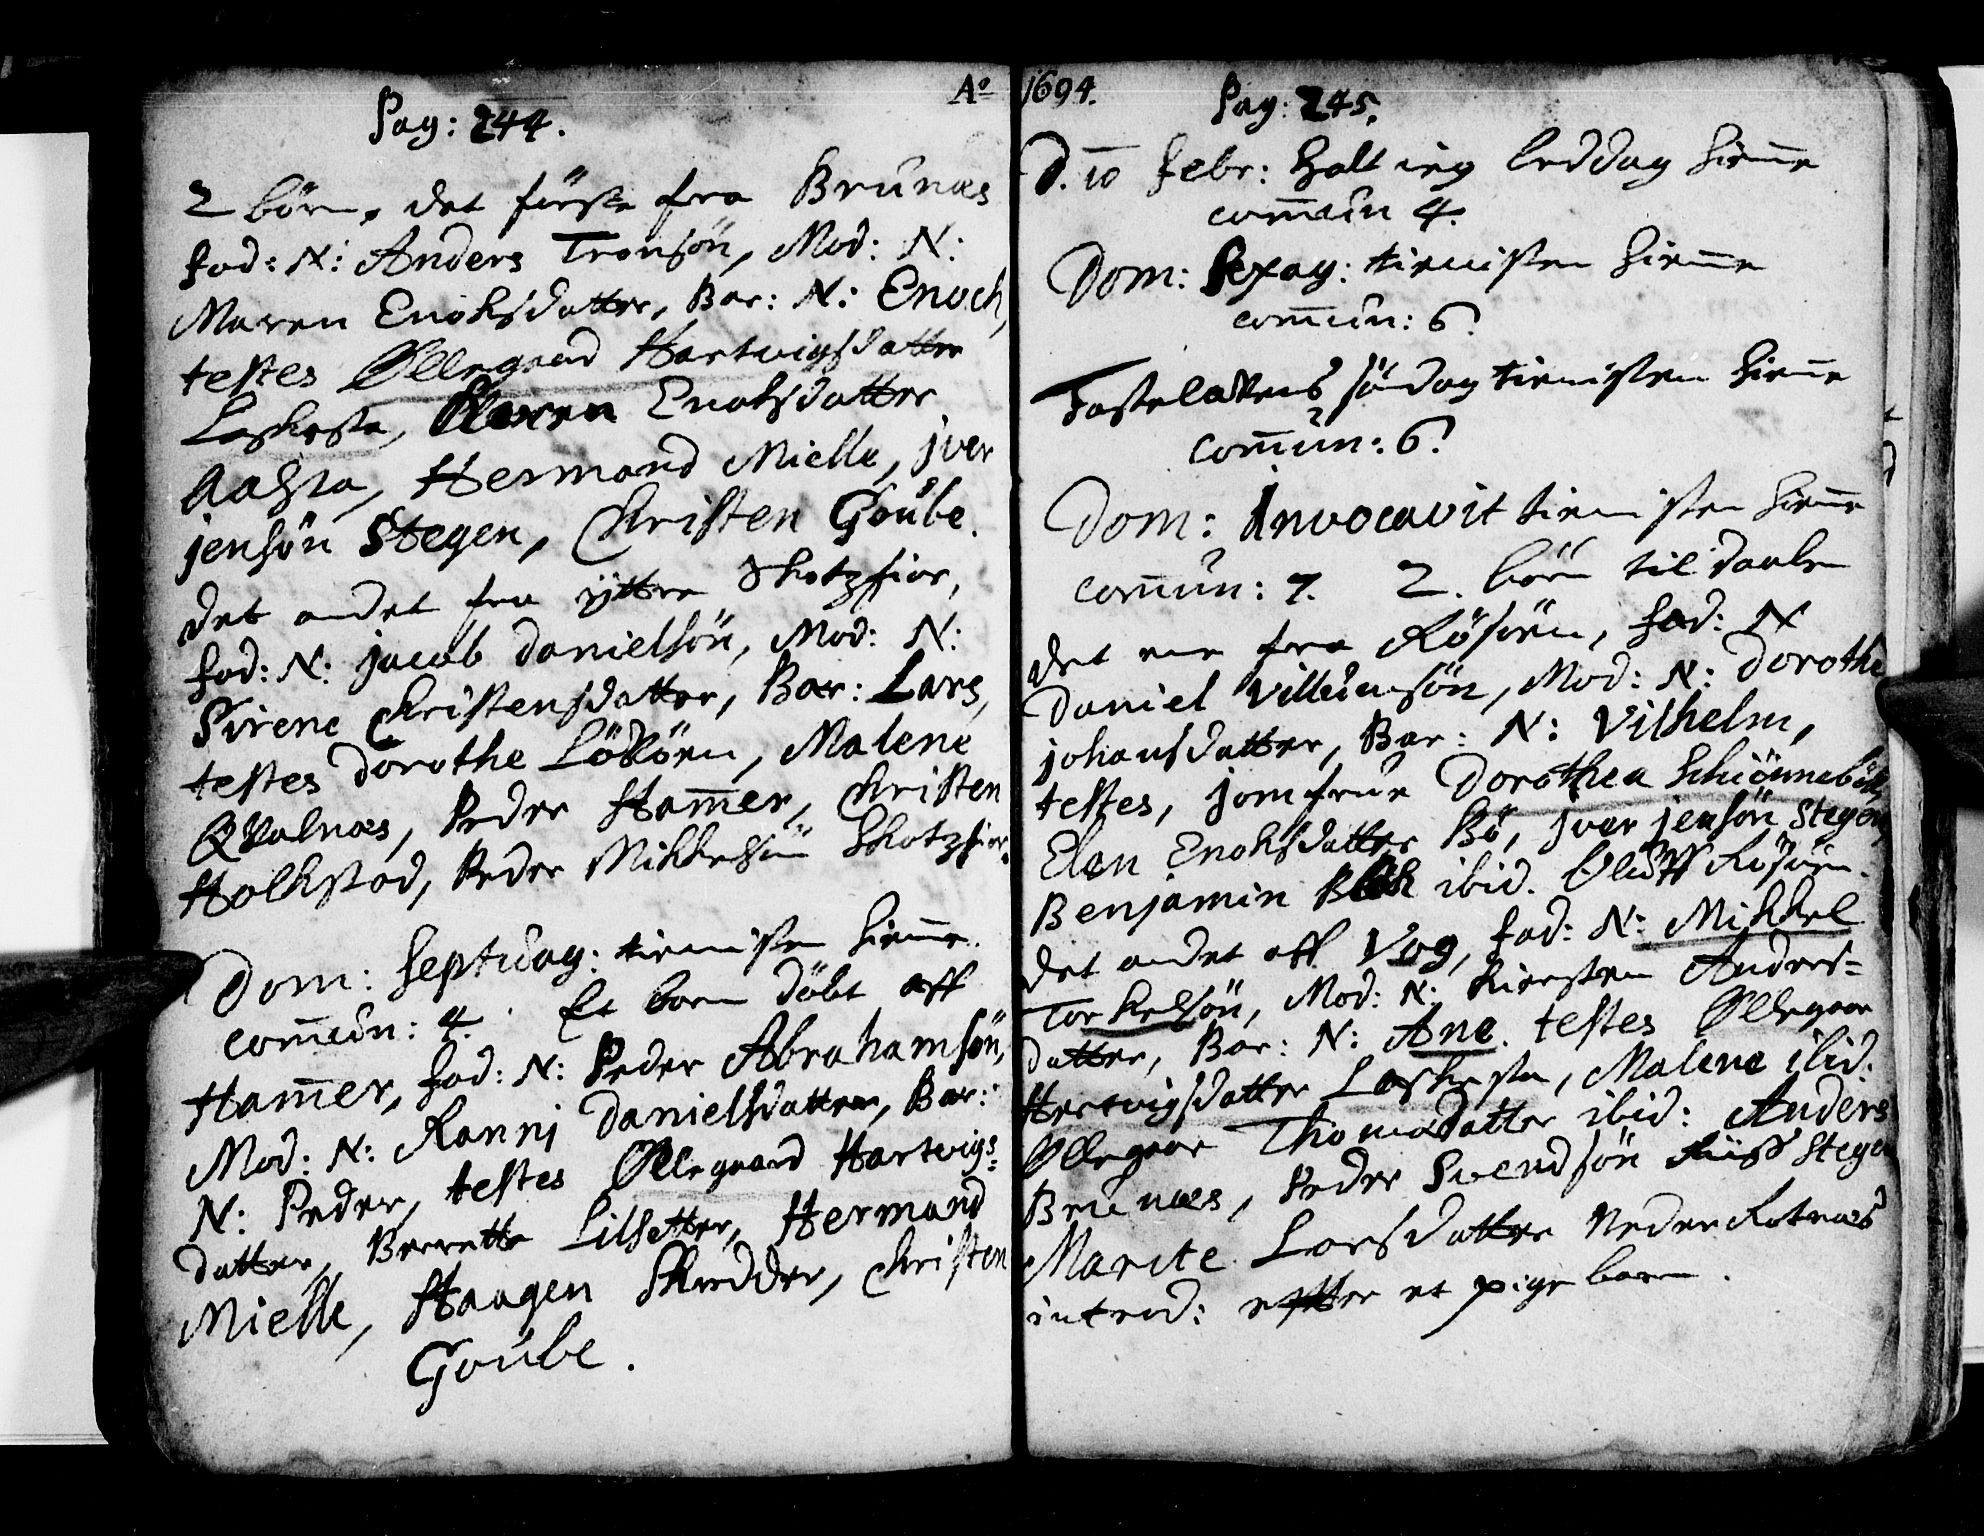 Aº 1694.
Pag: 244.
2 börn, det förste fra Brunæs
fad: N: Anders Tronsön, Mod: N:
Maren Enoksdatter, Bar: N: Enoch,
testes Øllegaard Hartvigsdatter
Laskesta, Maren Enoksdatter
Aalsta, Hermand Mielle, jver
jensön Stegen, Christen Goube.
det andet fra ÿttre Skotzfior,
fad: N: jacob danielsön, Mod: N:
Sirene Christensdatter, Bar: Lars,
testes dorothe Löbören, Malene
Qvalnæs, Peder Ham̅er, Christen
Holkestad, Peder Mikkelsön Skotzfior.
Dom: Septuag: tienisten hiem̅e.
com̅un: 4. Et barn döbt aff
Ham̅er, fad: N: Peder Abrahamsön,
Mod: N: Ranni danielsdatter, Bar:
N: Peder, testes Øllegaard Hartvigs=
datter, Berrette Lilsetter, Hermand
Mielle, Haagen Skredder, Christen
Goube.
Pag: 245.
D. 10 febr: holt ieg beddag hiem̅e
com̅un 4.
Dom: Sexag: tienisten hiem̅e
com̅un: 6.
Fastelavens söndag tienisten hiem̅e
com̅un: 6.
Dom: Invocavit tienisten hiem̅e
com̅un: 7. 2. börn til daaben
det ene fra Rösöen, fad: N
Daniel Villumsön, Mod: N: Dorothe
johansdatter, Bar: N: Vilhelm,
testes, jomfrue Dorothea Schiönneböl,
Elen Enoksdatter Bö, jver jensön Stegen,
Benjamin ibid. Oluff Rösöen.
det andet aff Vog, fad: N: Mikkel
Torkelsön, Mod: N: Kiersten Anders=
datter, Bar: N: Ane. testes Øllegaar
Hertvigsdatter Laskesta, Malene ibid.
Øllegaar Thomasdatter ibid: Anders
Brunæs, Peder Svendsön Stegen
Marite Larsdatter Neder Rotnæs
introd: effter et pige barn.